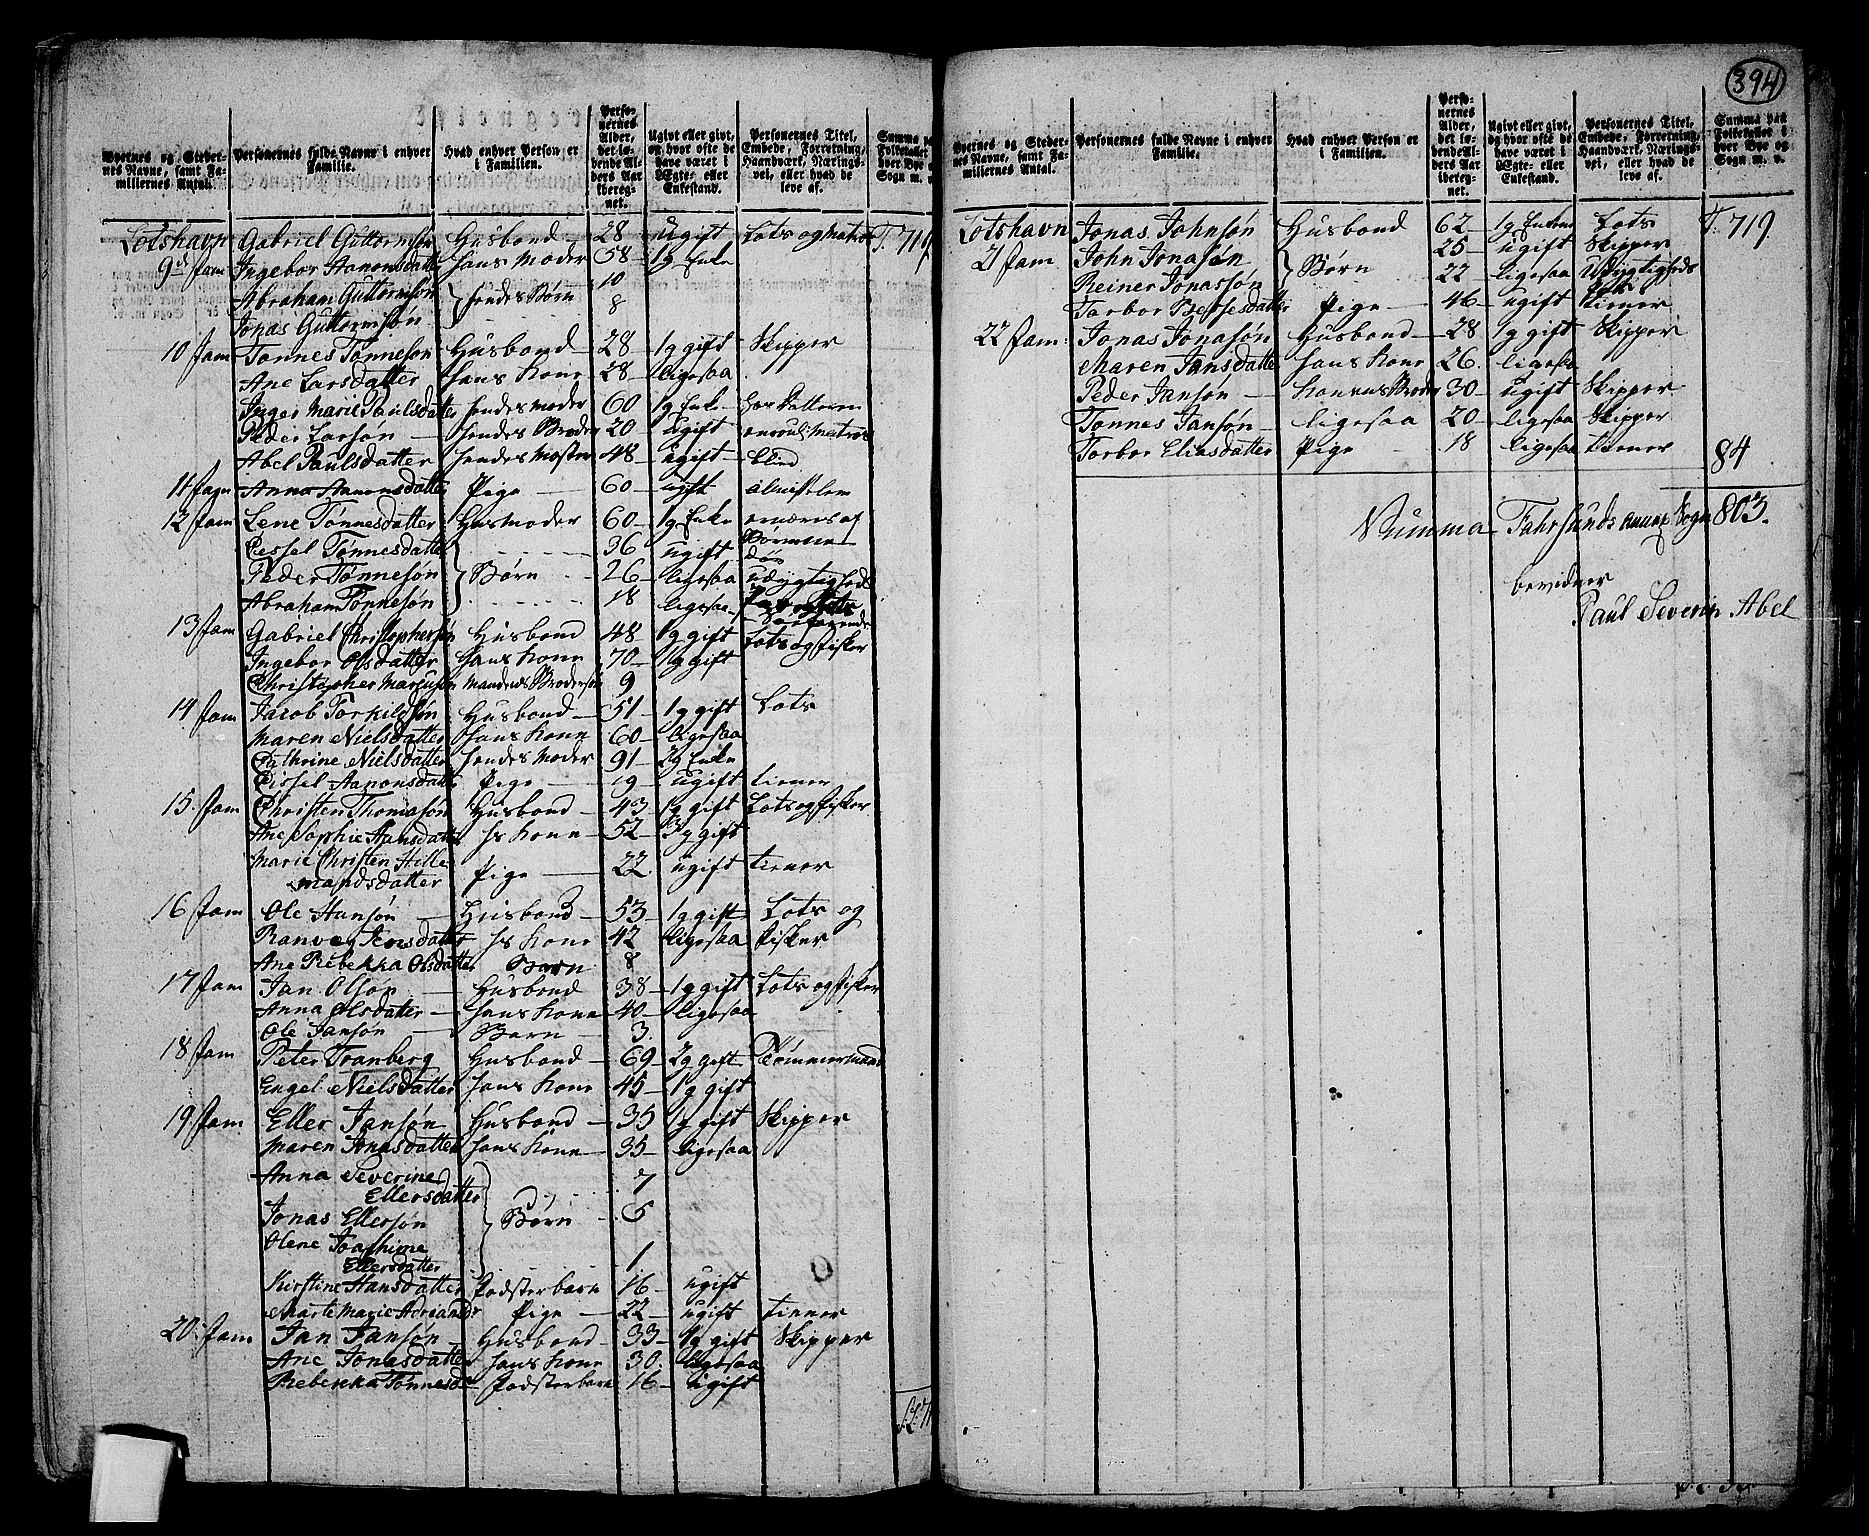 394
Byernes og Stedernes Navne, samt Familiernes Antal. | Personernes fulde Navne i enhver Familie. | Hvad enhver Person er i Familien. | Personernes Alder, det løbende Alders Aar iberegnet. | Ugivt eller givt, og hvor ofte de have været i Ægte- eller Enkestand. | Personernes Titel, Embede, Forretning, Haandværk, Næringsvei, eller hvad de leve af. | Summa paa Folketallet i hver Bye og Sogn m. v.
Lotshavn | Gabriel Guttormsøn | Husbond | 28 | ugift | Lots og Matros | T. 719
9de fam | Ingebor Aanonsdatter | hans Moder | 58 | 1g Enke
Abraham Guttormsøn | hendes Børn | 10
Jonas Guttormsøn | 8
10 fam | Tønnes Tønnesøn | Husbond | 28 | 1g gift | Skipper
Ane Larsdatter | hans Kone | 28 | ligesaa
Inger Marie Paulsdatter | hendes Moder | 60 | 1g Enke | hos Datteren
Peder Larsøn | hendes Broder | 20 | ugift | Matros
Abel Paulsdatter | hendes Moster | 48 | ugift | blind
11 fam | Anna Aanonsdatter | Pige | 60 | ugift | almisselem
12 fam | Lene Tønnesdatter | Husmoder | 60 | 1g Enke | ernæres af
Sessel Tønnesdatter | 36 | ugift | Børnene
Peder Tønnesøn | Børn | 26 | ligesaa | udygtigheds
Abraham Tønnesøn | 18 | ligesaa
13 fam | Gabriel Christophersøn | Husbond | 48 | 1g gift | Lots og fisker
Ingebor Olsdatter | hans Kone | 70 | 1g gift
Christopher Marcusøn | Mandens Brodersøn | 9
14 fam | Jacob Torkildsøn | Husbond | 51 | 1g gift | Lots
Maren Nielsdatter | hans Kone | 60 | ligesaa
Cathrine Nielsdatter | hendes Moder | 91 | 2g Enke
Sissel Aanonsdatter | Pige | 19 | ugift | tiener
15. fam | Christen Thomasøn | Husbond | 43 | 1g gift | Lots og fisker
Ane Sophie Hansdatter | hs Kone | 52 | 3g gift
Marie Christen Hille
mandsdatter | Pige | 22 | ugift | tiener
16 fam | Ole Hansøn | Husbond | 53 | 1g gift | Lots og
Ranveg Jensdatter | hs Kone | 42 | ligesaa | fisker
Ane Rebekka Olsdatter | Barn | 8
17 fam | Jan Olsøn | Husbond | 38 | 1g gift | Lots og fisker
Anna Olsdatter | hans Kone | 40 | ligesaa
Ole Jansøn | Barn | 3
18 fam | Peter Tranberg | Husbond | 69 | 2g gift | Tømmermand
Engel Nielsdatter | hans Kone | 45 | 1g gift
19 fam | Eller Jansøn | Husbond | 35 | 1g gift | Skipper
Maren Jonasdatter | hans Kone | 35 | ligesaa
Anna Severine
Ellersdatter | 7
Jonas Ellersøn | Børn | 5
Olene Joachime
Ellersdatter | 1
Kirstine Hansdatter | Podsterbarn | 16 | ugift
Marte Marie Adriansdr | Pige | 22 | ugift | tiener
20 fam | Jan Jansøn | Husbond | 33 | 1g gift | Skipper
Ane Jonasdatter | hans Kone | 30 | ligesaa
Rebekka Tønnesd. | Podsterbarn | 16 | ugift
Byernes og Stedernes Navne, samt Familiernes Antal. | Personernes fulde Navne i enhver Familie. | Hvad enhver Person er i Familien. | Personernes Alder, det løbende Alders Aar iberegnet. | Ugivt eller givt, og hvor ofte de have været i Ægte- eller Enkestand. | Personernes Titel, Embede, Forretning, Haandværk, Næringsvei, eller hvad de leve af. | Summa paa Folketallet i hver Bye og Sogn m. v.
Lotshavn | Jonas Johnsøn | Husbond | 62 | 1g Enkem | Lots | T. 719
21 fam | John Jonasøn | Børn | 25 | ugift | Skipper
Reiner Jonassøn | 22 | ligesaa | udygtigheds
Torbor Berfesdatter | Pige | 46 | ugift | tiener
22 fam. | Jonas Jonasøn | Husbond | 28 | 1g gift | Skipper
Maren Jansdatter | hans Kone | 26 | ligesaa
Peder Jansøn | Konens Broder | 30 | ugift | Skipper
Tønnes Jansøn | ligesaa | 20 | ligesaa | Skipper
Torbor Eliasdatter | Pige | 18 | ligesaa | tiener | 84
Summa Fahrsunds annex Sogn 803.
bevidner
Paul Severin Abel